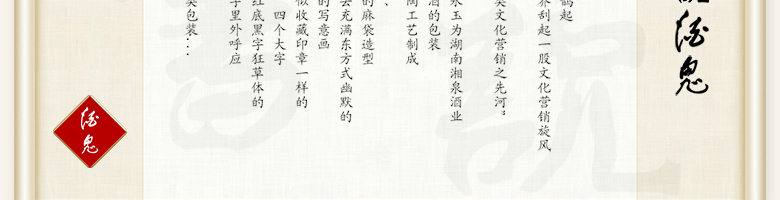 酒鬼
鹊起
界刮起一股文化营销旋风
类文化营销之先河"
永玉为湖南湘泉酒业
酒的包装
陶工艺制成
、
的麻袋造型
去充满东方式幽默的
的写意画
似收藏印章一样的
四个大字
红底黑字狂草体的
字里外呼应
类包装...
酒鬼